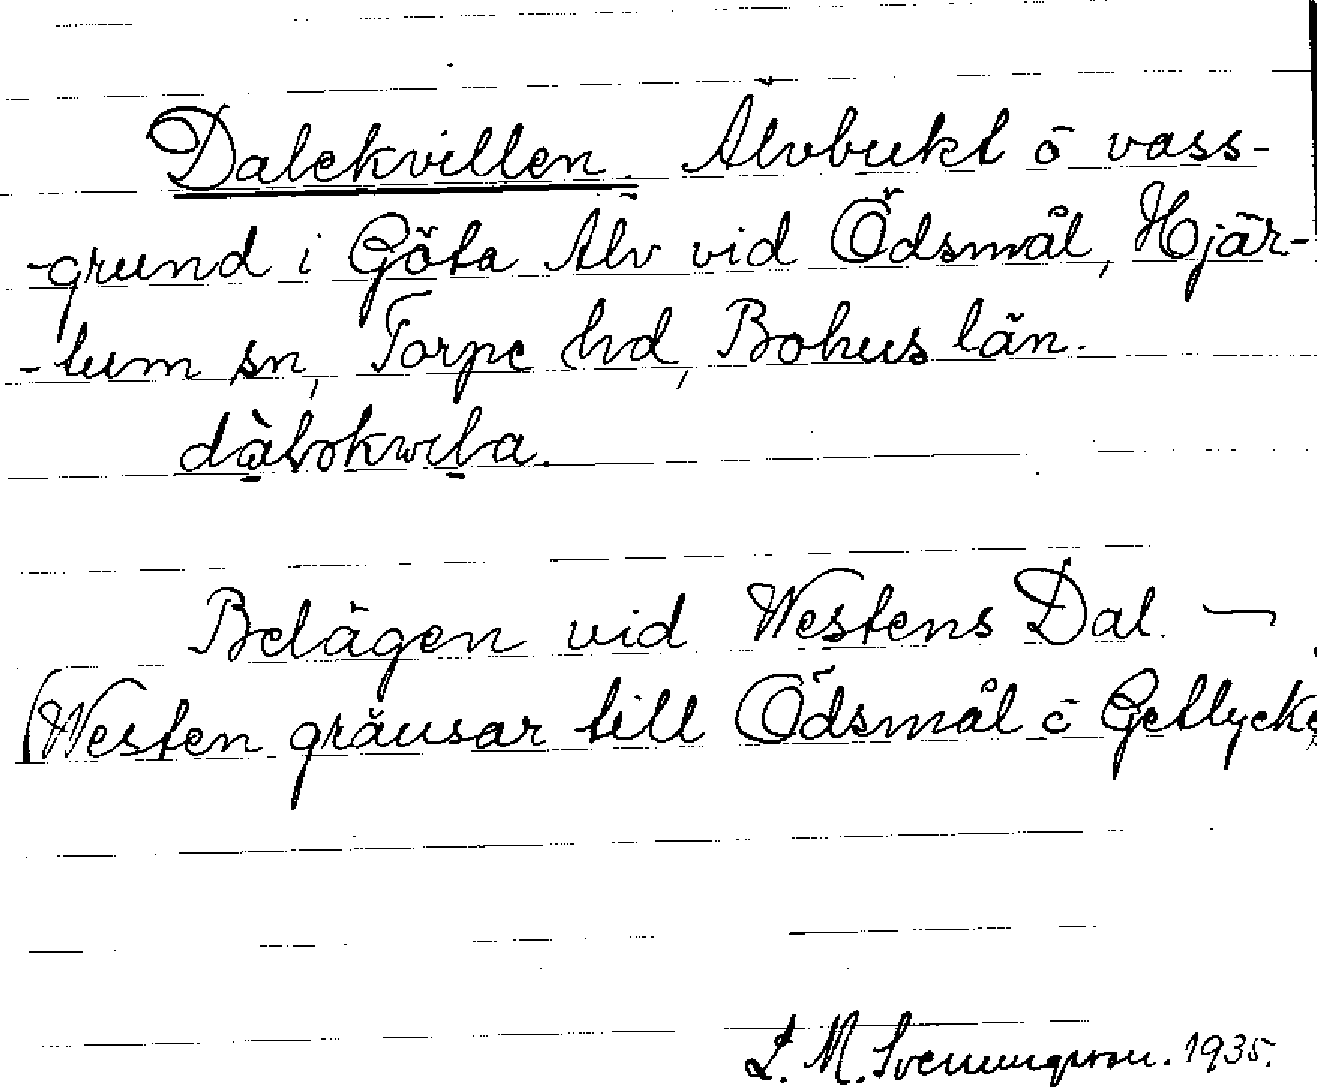 Dalekvillen. Älvbukt o vass-
-grund i Göta Älv vid Ödsmål, Hjär-
-tum sn, Torpe hd, Bohus län.
Belägen vid Westens Dal. —
(Westen gränsar till Ödsmål o Getlycke
L. M. Svenungsson. 1935.